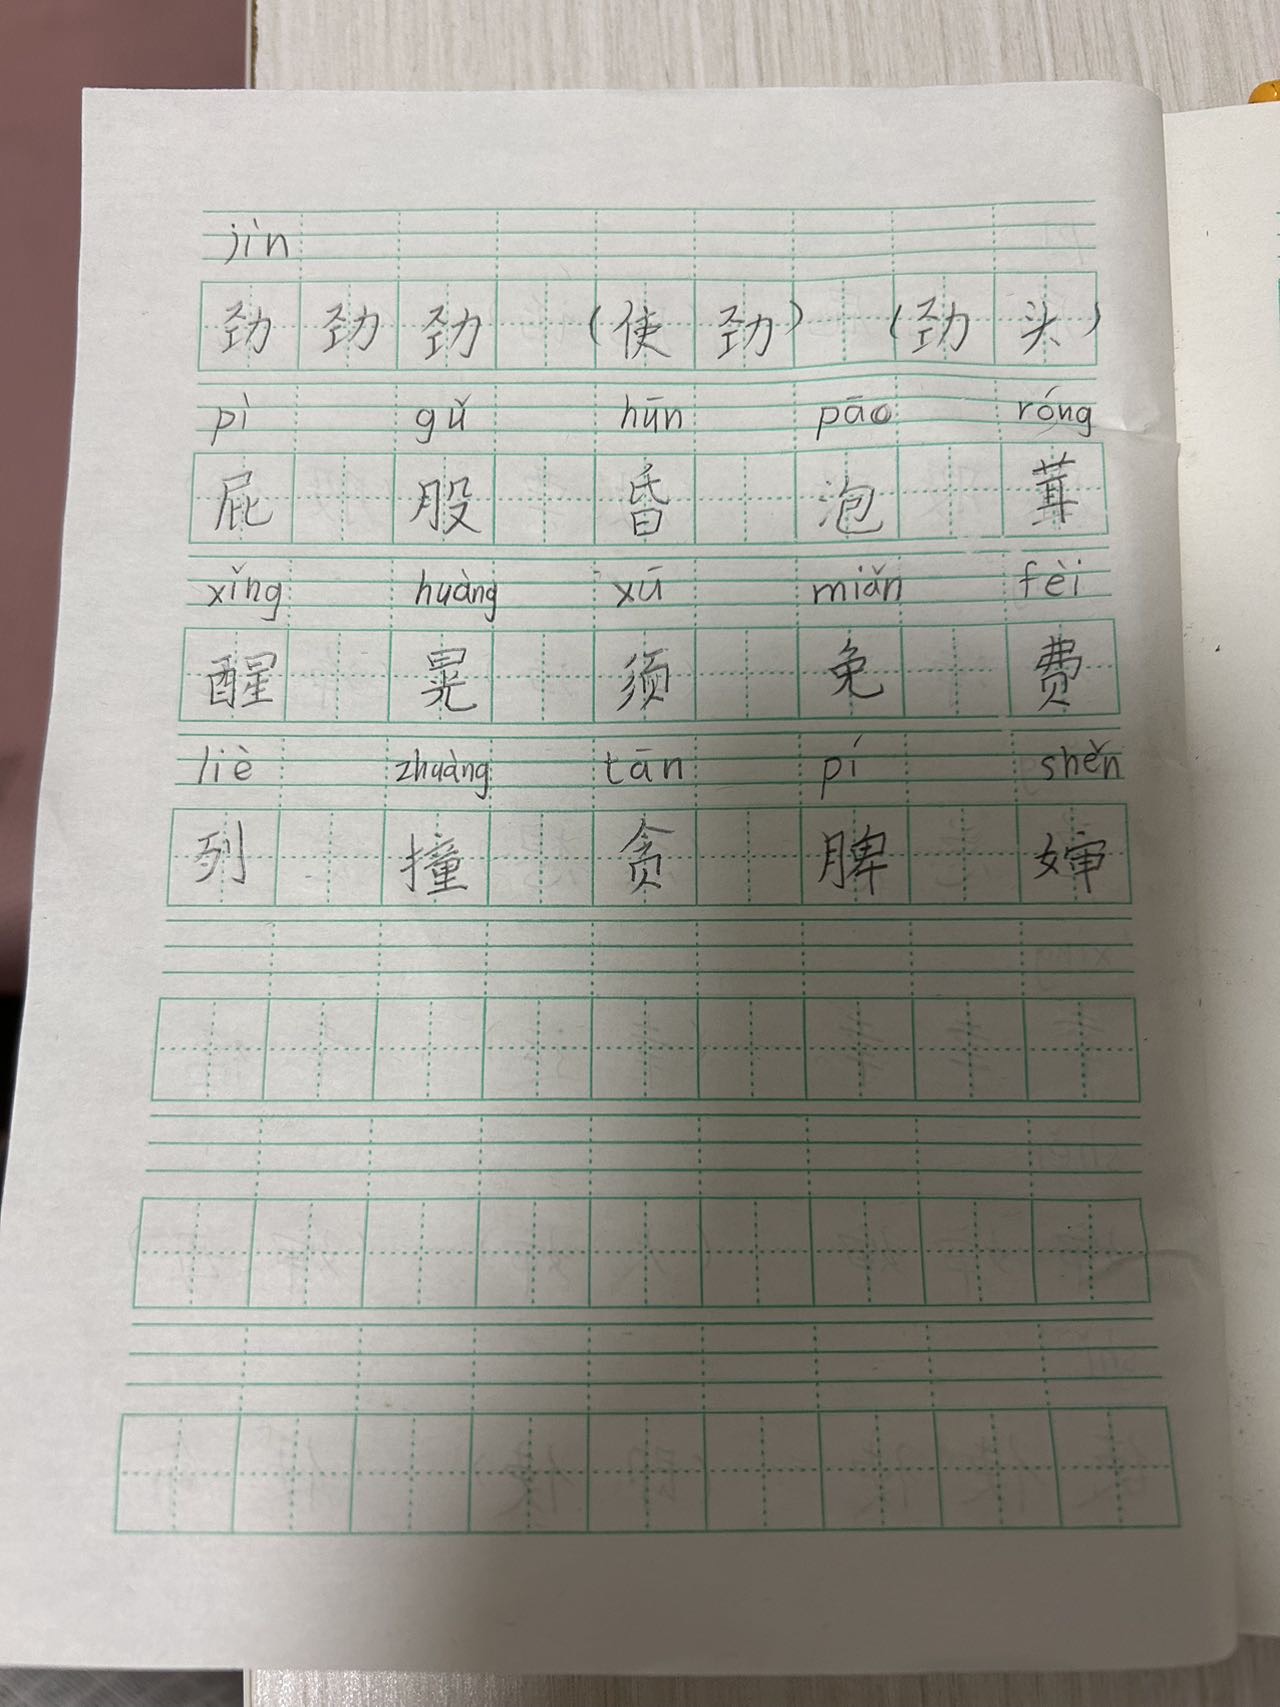 jìn
劲 劲 劲 (使 劲) (劲 头)
pì gǔ hūn pāo róng
屁 股 昏 泡 茸
xǐng huàng xū miǎn fèi
醒 晃 须 免 费
liè zhuàng tān pí shěn
列 撞 贪 脾 婶